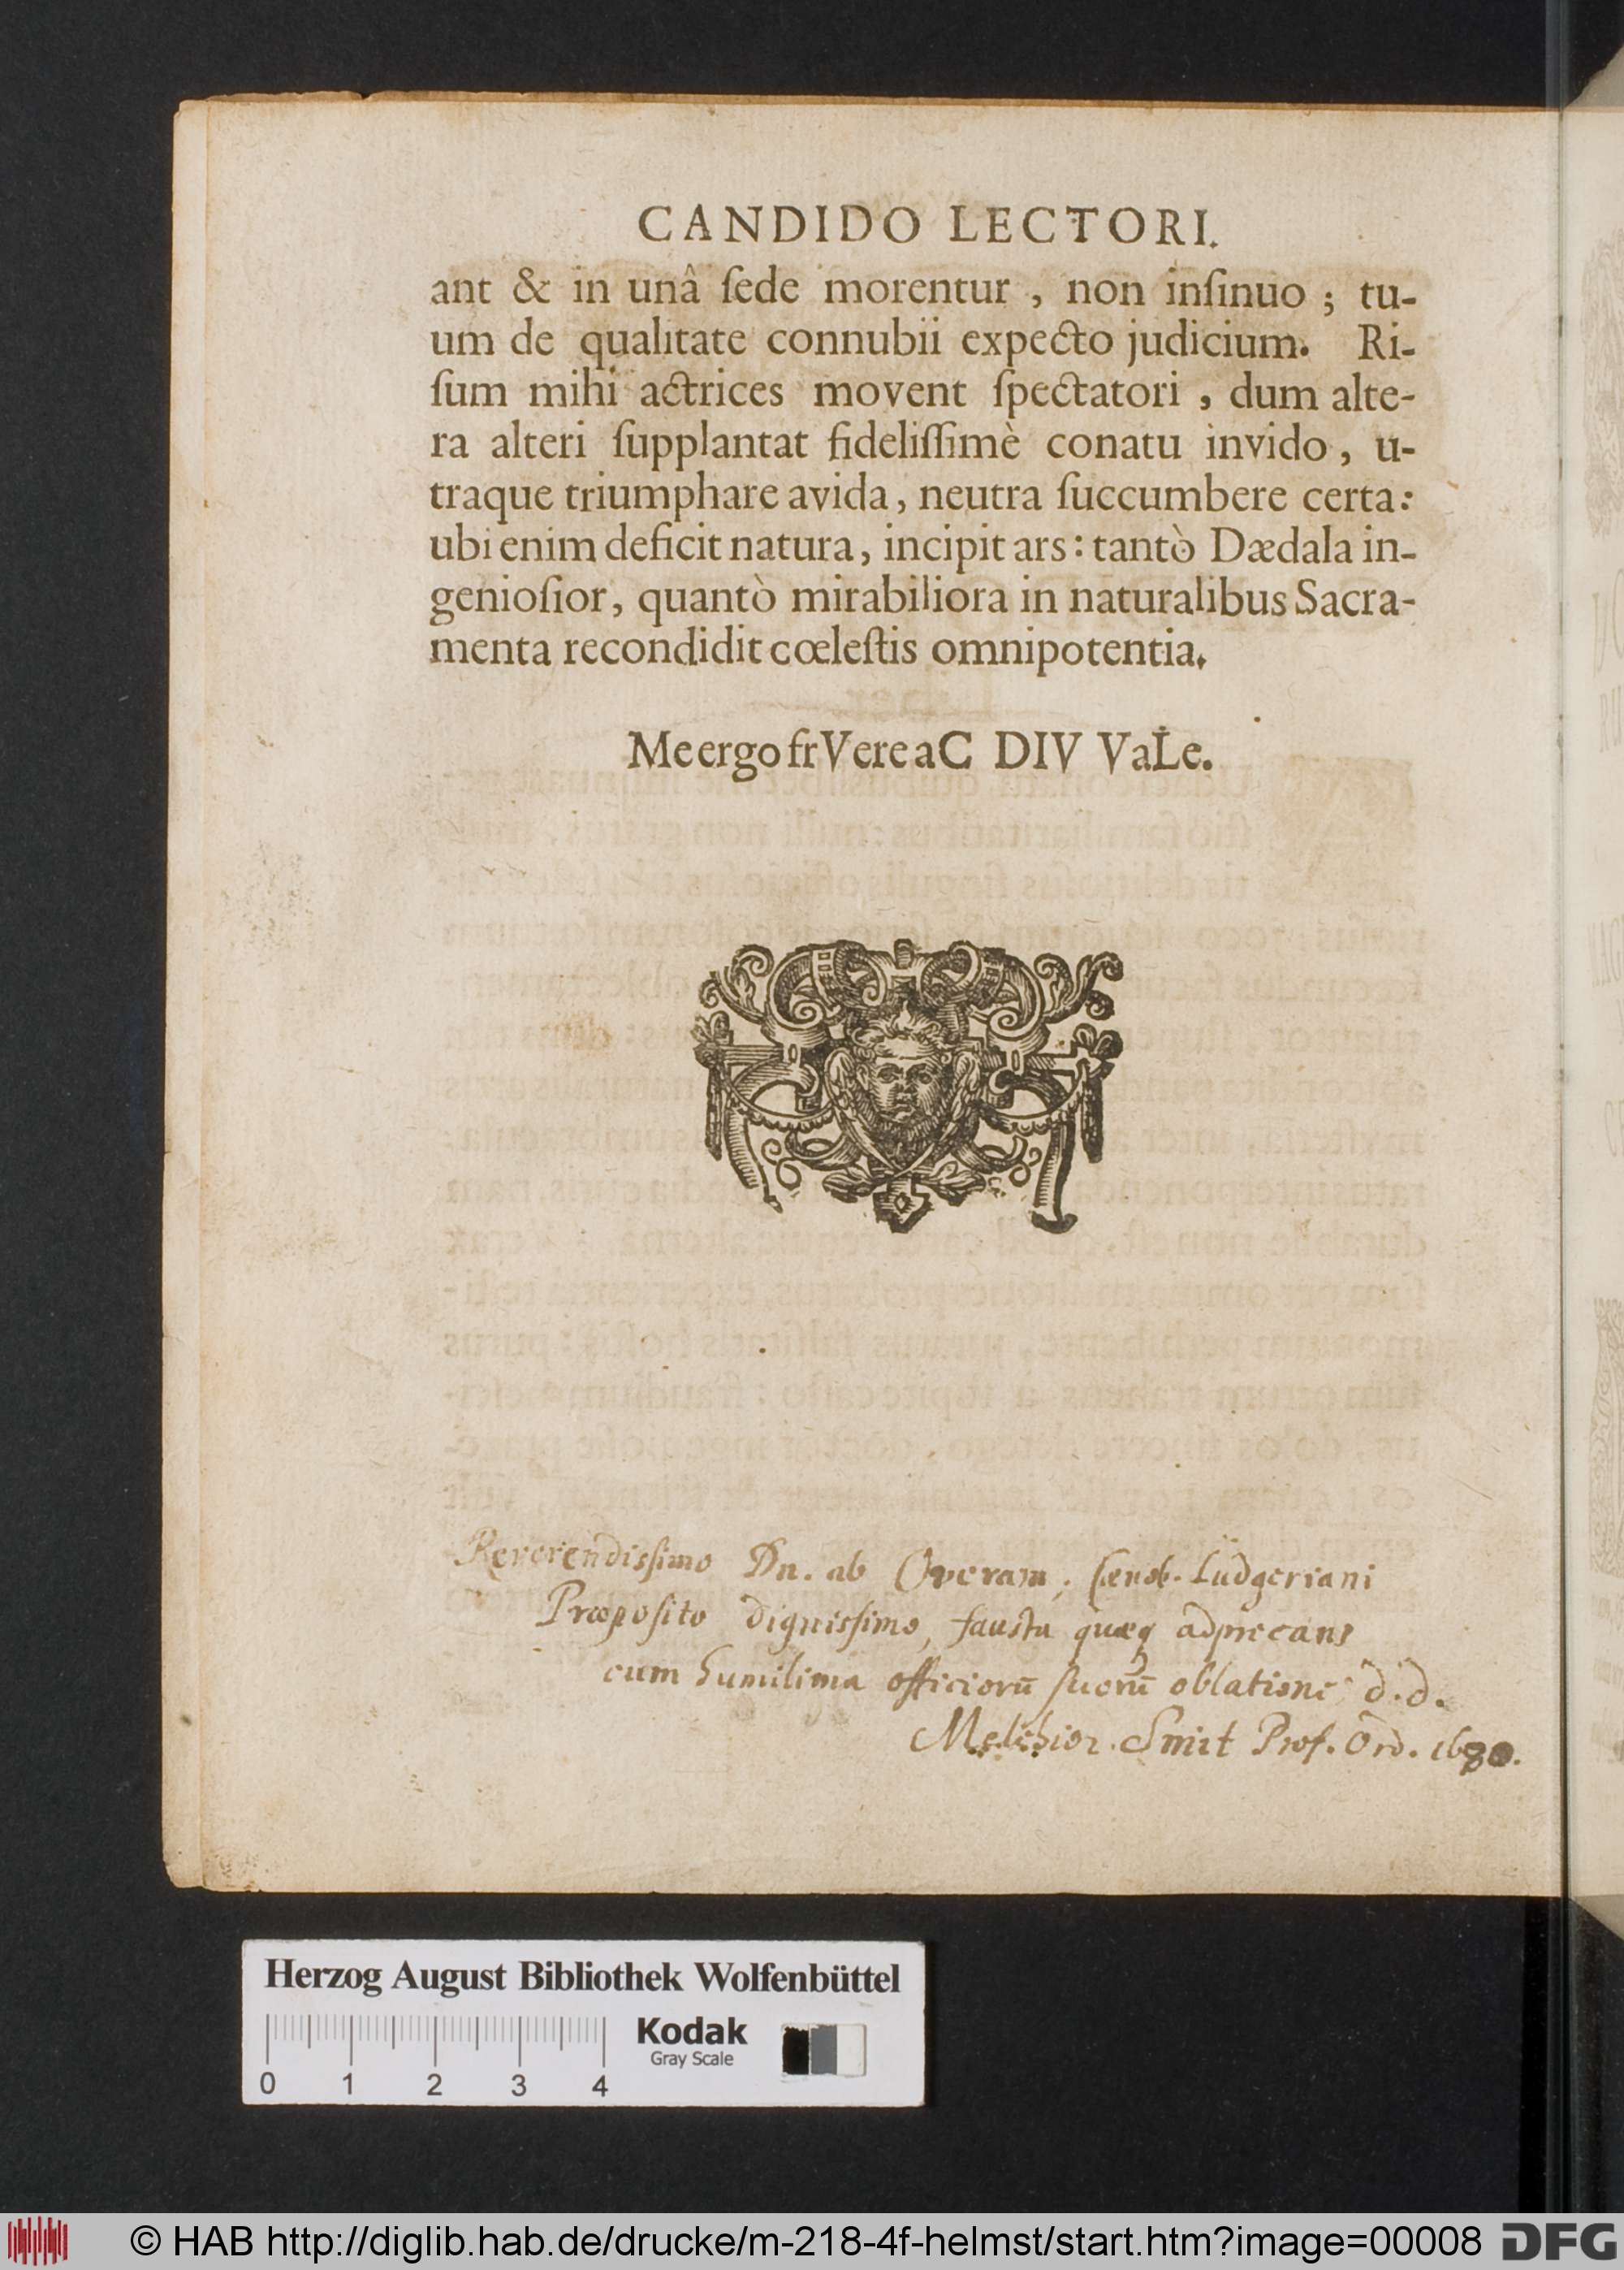 CANDIDO LECTORI.
ant & in unâ ſede morentur, non inſinuo; tu-
um de qualitate connubii expecto judicium. Ri-
ſum mihi actrices movent ſpectatori, dum alte-
ra alteri ſupplantat fideliſſimè conatu invido, u-
traque triumphare avida, neutra ſuccumbere certa:
ubi enim deficit natura, incipit ars: tantò Dædala in-
genioſior, quantò mirabiliora in naturalibus Sacra-
menta recondidit cœleſtis omnipotentia.
Me ergo frVere aC DIV VaLe.
Reverendisſimo Dn. ab Overam, Cœnob. Ludgeriani
Præposito dignisſimo, fausta quæq adprecans
cum humilima officiorū ſuorū oblatione d.d.
Melchior Smit Prof. Ord. 1680.
Herzog August Bibliothek Wolfenbüttel
Kodak
Gray Scale
0 1 2 3 4
© HAB http://diglib.hab.de/drucke/m-218-4f-helmst/start.htm?image=00008 DFG